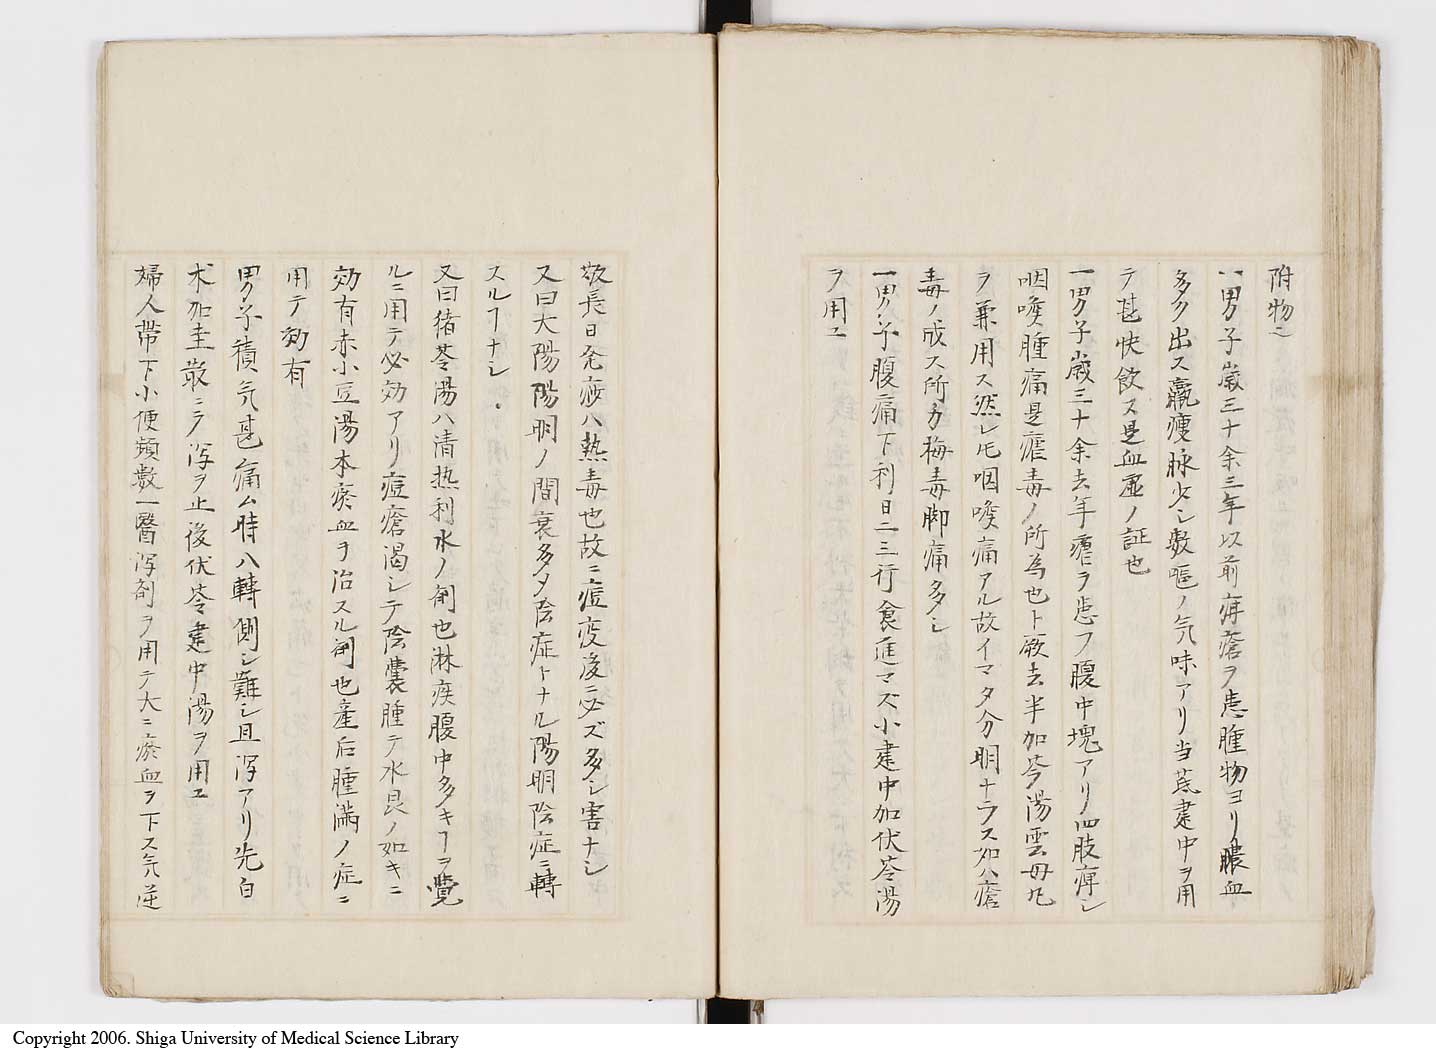 附物ニ
一男子歳三十余三年以前痔瘡ヲ患腫物ヨリ膿血
多ク出ス羸痩脉少シ數嘔ノ気味アリ当芪建中ヲ用
テ甚快飲ス是血虚ノ証也
一男子歳三十余去年瘧ヲ患フ腹中塊アリ四肢痺シ
咽喉腫痛是瘧毒ノ所為也ト厥去半加芩湯雲母丸
ヲ兼用ス然レ𪜈咽喉痛アル故イマタ分明ナラス如ハ瘡
毒ノ成ス所カ梅毒脚痛多シ
一男子腹痛下利日二三行食進マズ小建中加伏苓湯
ヲ用ユ
敬長曰発痧ハ熱毒也故ニ痘疫後ニ必ズ多シ害ナシ
又曰大陽陽明ノ間衰多メ陰症トナル陽明陰症ニ轉
スルヿナシ
又曰猪苓湯ハ清热利水ノ剤也淋疾腹中多キヿヲ覺
ルニ用テ必効アリ痘瘡渇シテ陰囊腫テ水晶ノ如キニ
効有赤小豆湯本瘀血ヲ治スル剤也産后腫滿ノ症ニ
用テ効有
男子積気甚痛ム時ハ轉側シ難シ且瀉アリ先白
朮加圭散ニテ瀉ヲ止後伏苓建中湯ヲ用ユ
婦人帶下小便頻數一醫瀉剤ヲ用テ大ニ瘀血ヲ下ス気逆
Copyright 2006. Shiga University of Medical Science Library